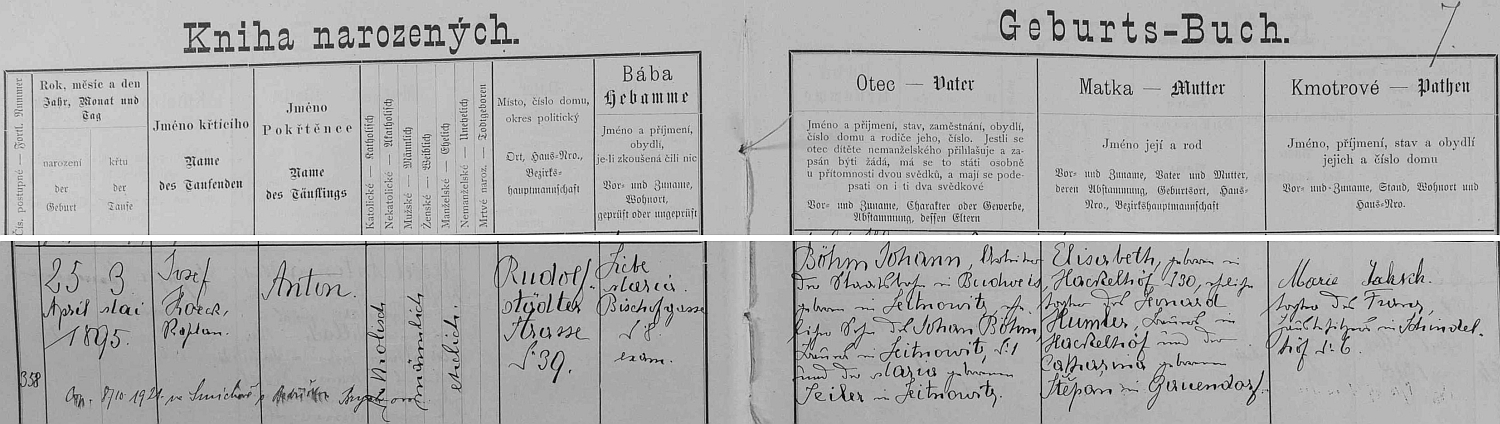 Kniha narozených.
Geburts-Buch.
7
Čís. postupné — Fortl. Nummer
Rok, měsíc a den
Jahr, Monat und
Tag
narození
der
Geburt
křtu
der
Taufe
Jméno křtícího
Name
des Taufenden
Jméno
Pokřtěnce
Name
des Täuflings
Katolické — Katholisch
Nekatolické — Akatholisch
Mužské — Männlich
Ženské — Weiblich
Manželské — Ehelich
Nemanželské — Unehelich
Mrtvě naroz. — Todtgeboren
Místo, číslo domu,
okres politický
Ort, Haus-Nro.,
Bezirks-
hauptmannschaft
Bába
Hebamme
Jméno a příjmení,
obydlí,
je-li zkoušená čili nic
Vor- und Zuname,
Wohnort,
geprüft oder ungeprüft
Otec — Vater
Jméno a přijmení, stav, zaměstnání, obydlí,
číslo domu a rodiče jeho, číslo. Jestli se
otec dítěte nemanželského přihlašuje a za-
psán býti žádá, má se to státi osobně
u přítomnosti dvou svědků, a mají se pode-
psati on i ti dva svědkové
Vor- und Zuname, Charakter oder Gewerbe,
Abstammung, dessen Eltern
Matka — Mutter
Jméno její a rod
Vor- und Zuname, Vater und Mutter,
deren Abstammung, Geburtsort, Haus-
Nro., Bezirkshauptmannschaft
Kmotrové — Pathen
Jméno, příjmení, stav a obydlí
jejich a číslo domu
Vor- und Zuname, Stand, Wohnort und
Haus-Nro.
358
25 3
April Mai
1895.
Josef
Kaplan.
Anton.
katholisch
männlich
ehelich.
Rudolf-
städter
Strasse
N. 39.
Maria
Bischofgasse
N. 8
exam.
Böhm Johann,
der Staatsbahn in Budweis
geboren in Leitnowitz, ehe-
licher Sohn des Johann Böhm,
in Leitnowitz, N. 1
und der Maria geborenen
Seiler in Leitnowitz.
Elisabeth, geboren in
Hackelhöf N. 30, eheliche
Tochter des Leonard
Humler, in
Hackelhöf und der
Katharina geborenen
Štěpan in Gauendorf.
Marie Jaksch.
Tochter des Franz,
in Schindel-
höf N. 6.
8/10 1921 ve Smíchově s